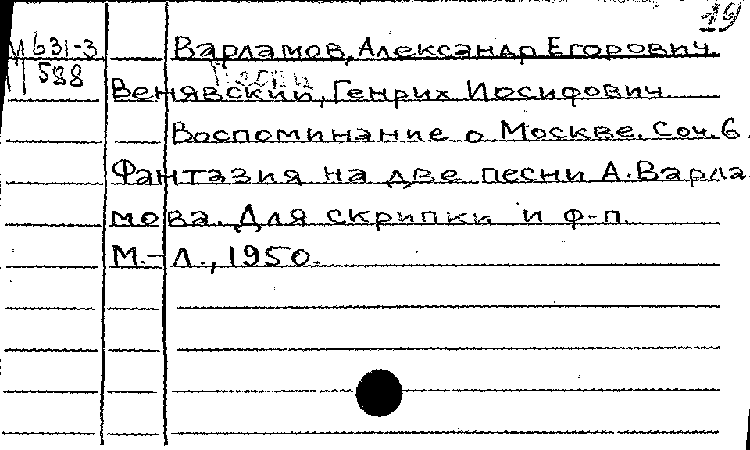 19
М 631-3 Варламов, Александр Егорович.
588 Песни
Венявский, Генрих Иосифович
Воспоминание о Москве. Соч. 6.
Фантазия на две песни А. Варла-
мова. Для скрипки и ф-п.
М.-Л., 1950.